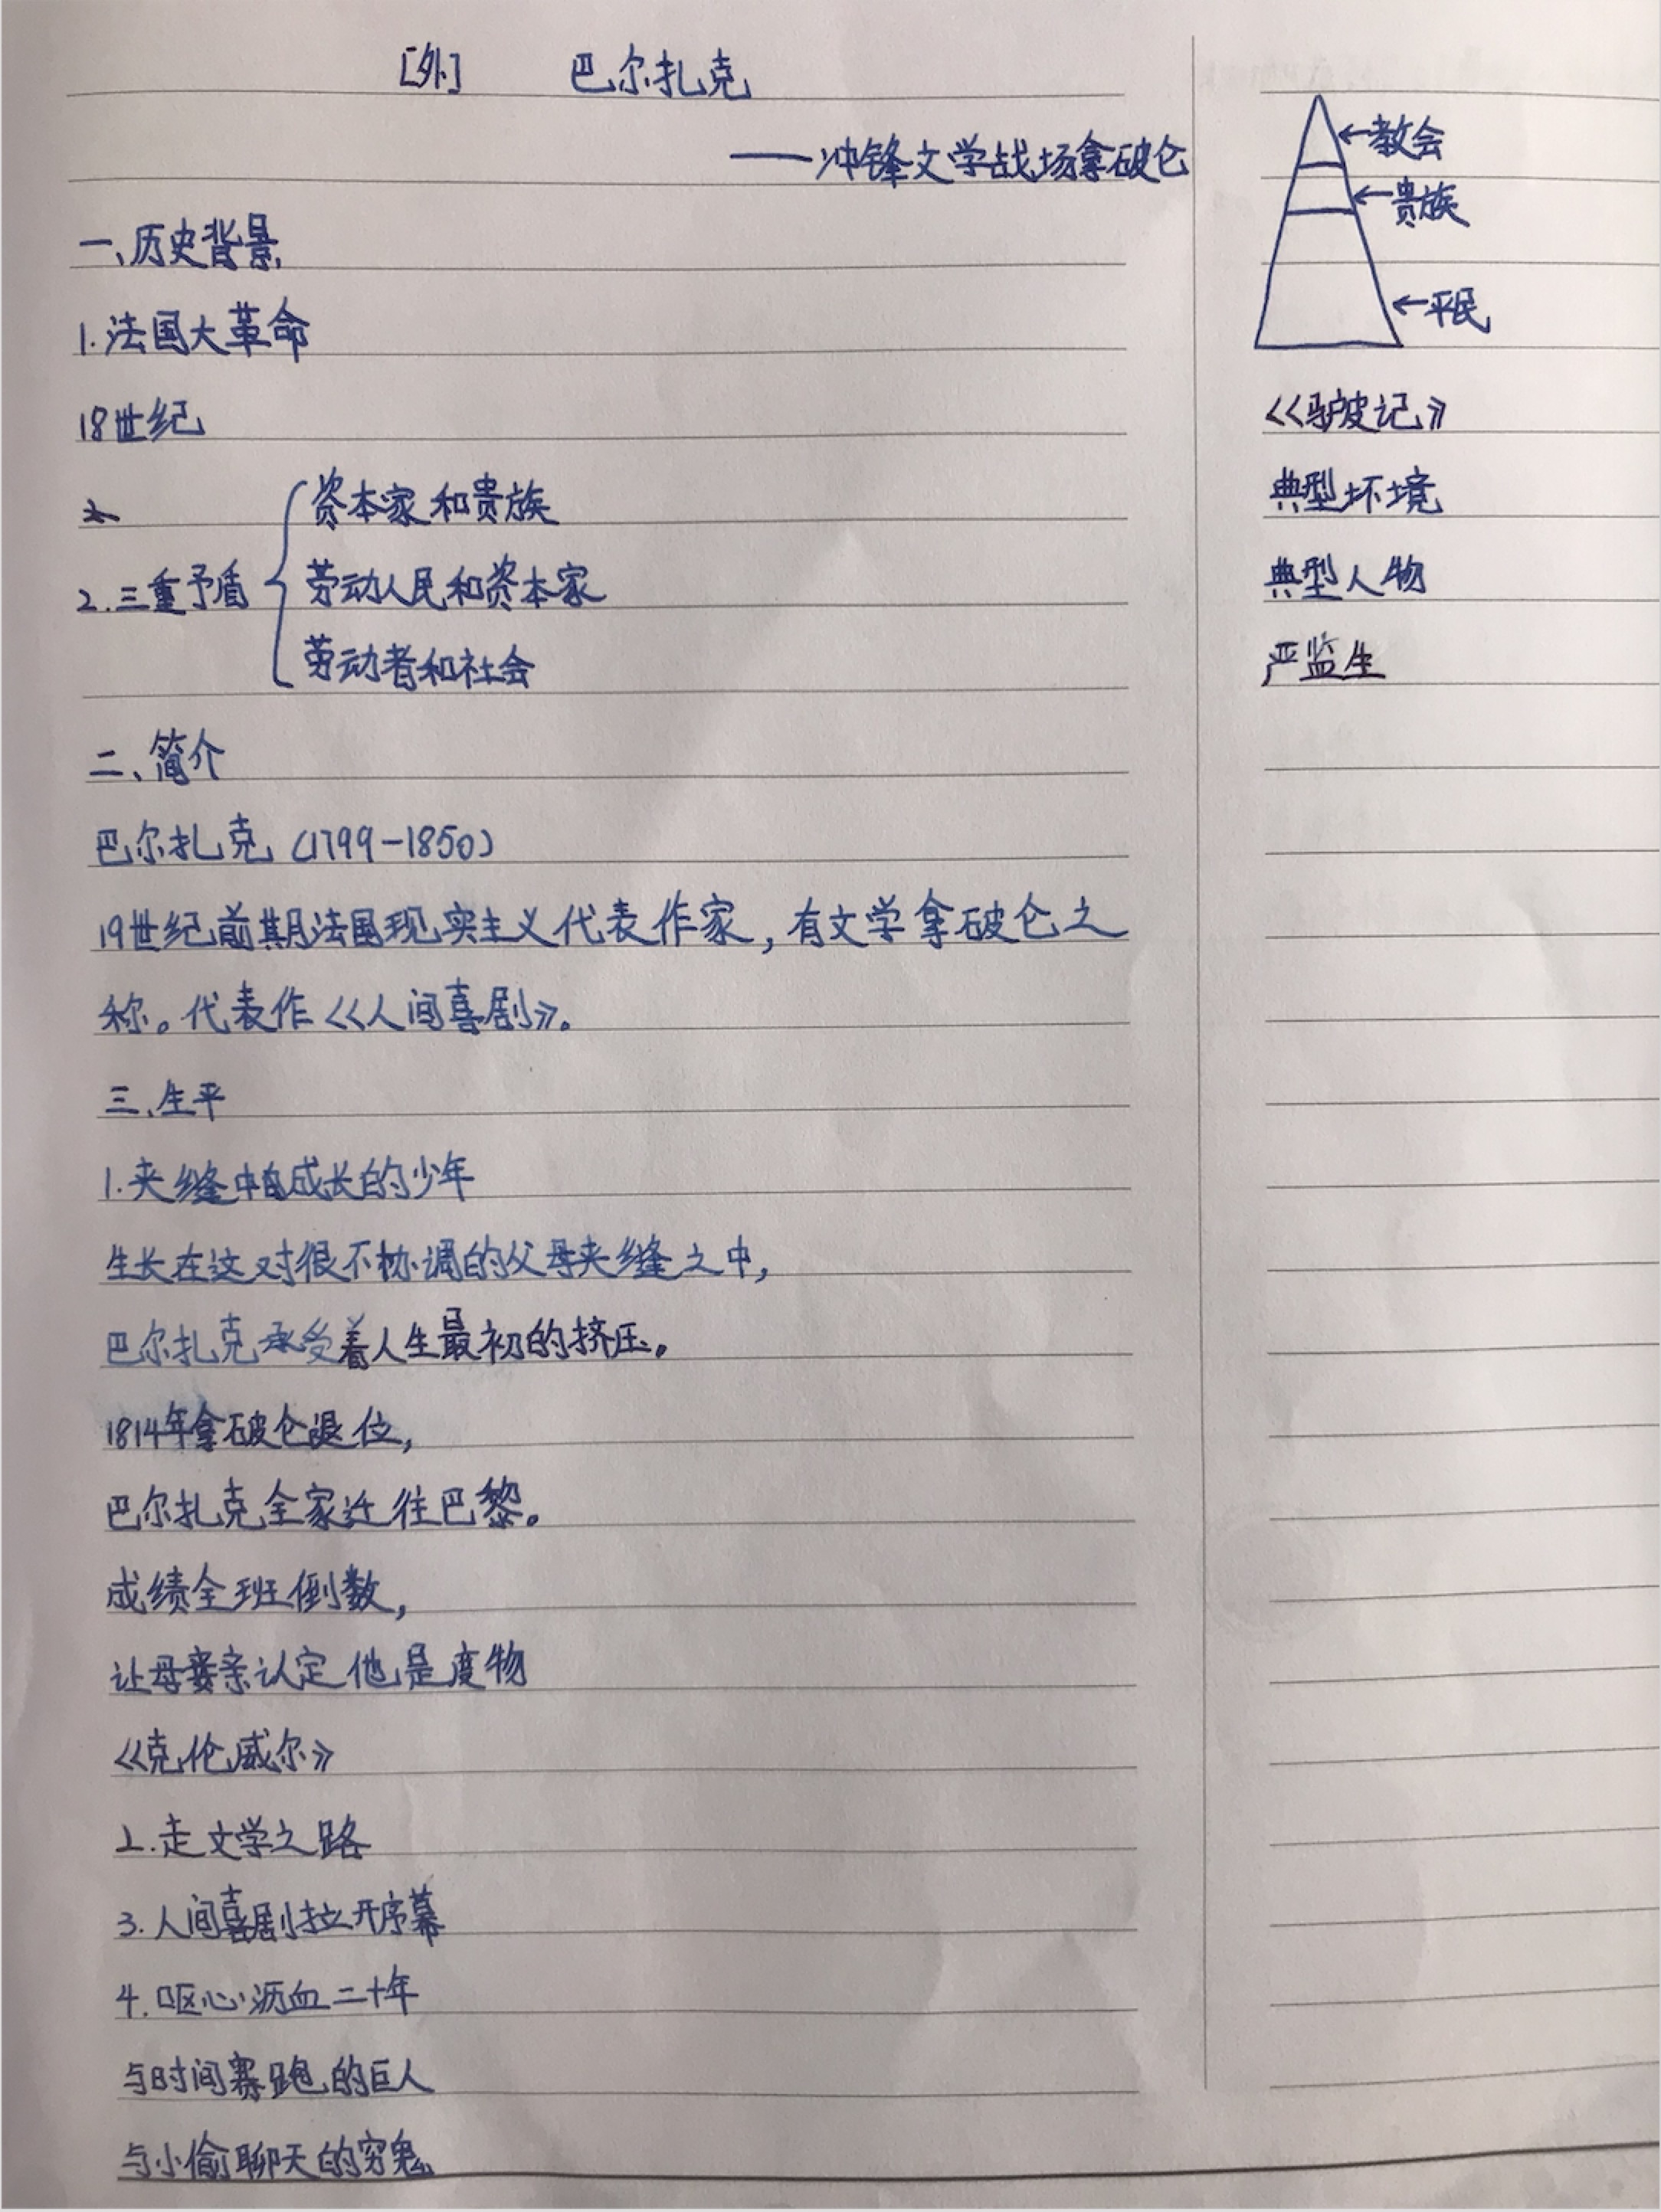 [外] 巴尔扎克
——冲锋文学战场拿破仑
一、历史背景
1.法国大革命
18世纪
资本家和贵族
2.三重矛盾
劳动人民和资本家
劳动者和社会
二、简介
巴尔扎克(1799-1850)
19世纪前期法国现实主义代表作家,有文学拿破仑之
称。代表作《人间喜剧》。
三、生平
1.夹缝中成长的少年
生长在这对很不协调的父母夹缝之中,
巴尔扎克承受着人生最初的挤压。
1814年拿破仑退位,
巴尔扎克全家迁往巴黎。
成绩全班倒数,
让母亲认定他是废物
《克伦威尔》
2.走文学之路
3.人间喜剧拉开序幕
4.呕心沥血二十年
与时间赛跑的巨人
与小偷聊天的穷鬼
←教会
←贵族
←平民
《驴皮记》
典型环境
典型人物
严监生